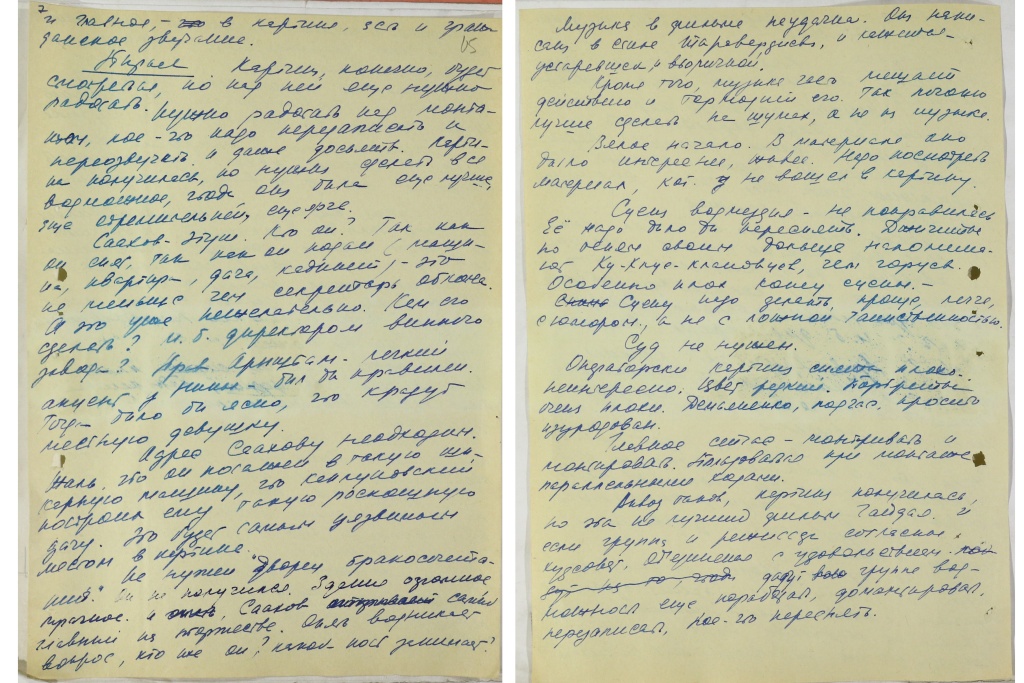 7
и главное, – в картине есть и граж-
данское звучание.
Пырьев Картина, конечно, будет
смотреться, но над ней еще нужно
работать. Нужно работать над монта-
жом, кое-что надо перезаписать и
переозвучить, и даже доснять. Карти-
на получилась, но нужно сделать все
возможное, чтобы она была еще лучше,
еще стремительней, еще ярче.
Саахов – Этуш. Кто он? Так как
он снят, так как он подан (маши-
на, квартира, дача, кабинет) – это
не меньше чем секретарь обкома.
А это уже нежелательно. Кем его
сделать? М.б. директором винного
завода? Прав Арнштам – легкий
акцент у Нины – был бы правилен.
Тогда было бы ясно, что крадут
местную девушку.
Адрес Саахову необходим.
Жаль, что он посажен в такую ши-
карную машину, что
построил ему такую роскошную
дачу. Это будет самым уязвимым
местом в картине.
Не нужен "Дворец бракосочета-
ний". Он не получился. Здание огромное
мрачное. И Саахов самый
главный на торжестве. Опять возникает
вопрос, кто же он? Какой пост занимает?
Музыка в фильме неудачна. Он напи-
сан в стиле Таривердиева, и
устаревшей, и вторичной.
Кроме того, музыка часто мешает
действию и тормозит его. Так погоню
лучше сделать на шумах, а не на музыке.
Вялое начало. В материале оно
было интереснее, живее. Надо посмотреть
материал, кот. не вошел в картину.
Сцена возмездия – не понравилась
Её надо было бы переснять. Джигиты
по
ют Ку-Клус-клановцев, чем горцев.
Особенно плох конец сцены. –
Сцену надо делать проще, легче,
с юмором, а не с ложной таинственностью.
Суд не нужен.
Операторски картина снята плохо.
неинтересно. Цвет резкий. Портреты
очень плохи. Демьяненко, подчас, просто
изуродован.
Главное сейчас – монтировать и
монтировать. Пользоваться при монтаже
параллельными ходами.
Вывод таков, картина получилась,
но это не лучший фильм Гайдая. И
если группа и режиссер согласны,
худсовет, Объединение с удовольствием
дадут группе воз-
можность еще поработать, домонтировать,
перезаписать, кое-что переснять.